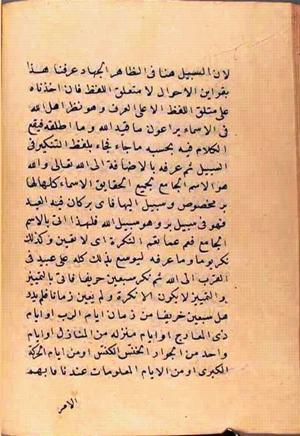 لان السبيل هنا فى الظاهر الجهاد عرفنا هذا
بقراين الاحوال لا متعلق اللفظ فان اخذناه
على متعلق اللفظ الا على العرف وهو نظر اهل الله
فى الاسماء يراعون ما قيد الله وما اطلقه فيقع
الكلام فيه بحسبه ما جاء فجاء بلفظ التنكير فى
السبيل ثم عرفه بالاضافة الى الله تعالى والله
هو الاسم الجامع لجميع الحقايق الاسماء كلها لها
بر مخصوص وسبيل اليها فاى بر كان فيه العبد
فهو فى سبيل بر وهو سبيل الله فلهذا اتى بالاسم
الجامع فعم عما تعم النكرة اى لا تعين وكذلك
نكر يوما وما عرفه ليوسع بذلك كله على عبيد فى
القرب الى الله ثم نكر سبعين خريفا فاتى بالتمييز
والتمييز لا يكون الا نكرة ولم يعين زمانا فلم يدر
هل سبعين خريفا من زمان ايام الرب او ايام
ذى المعارج او ايام منزله من المنازل او ايام
واحد من الجوار الخنس الكنس او من ايام الحركة
الكبرى او من الايام المعلومات عندنا فابهم
الامر